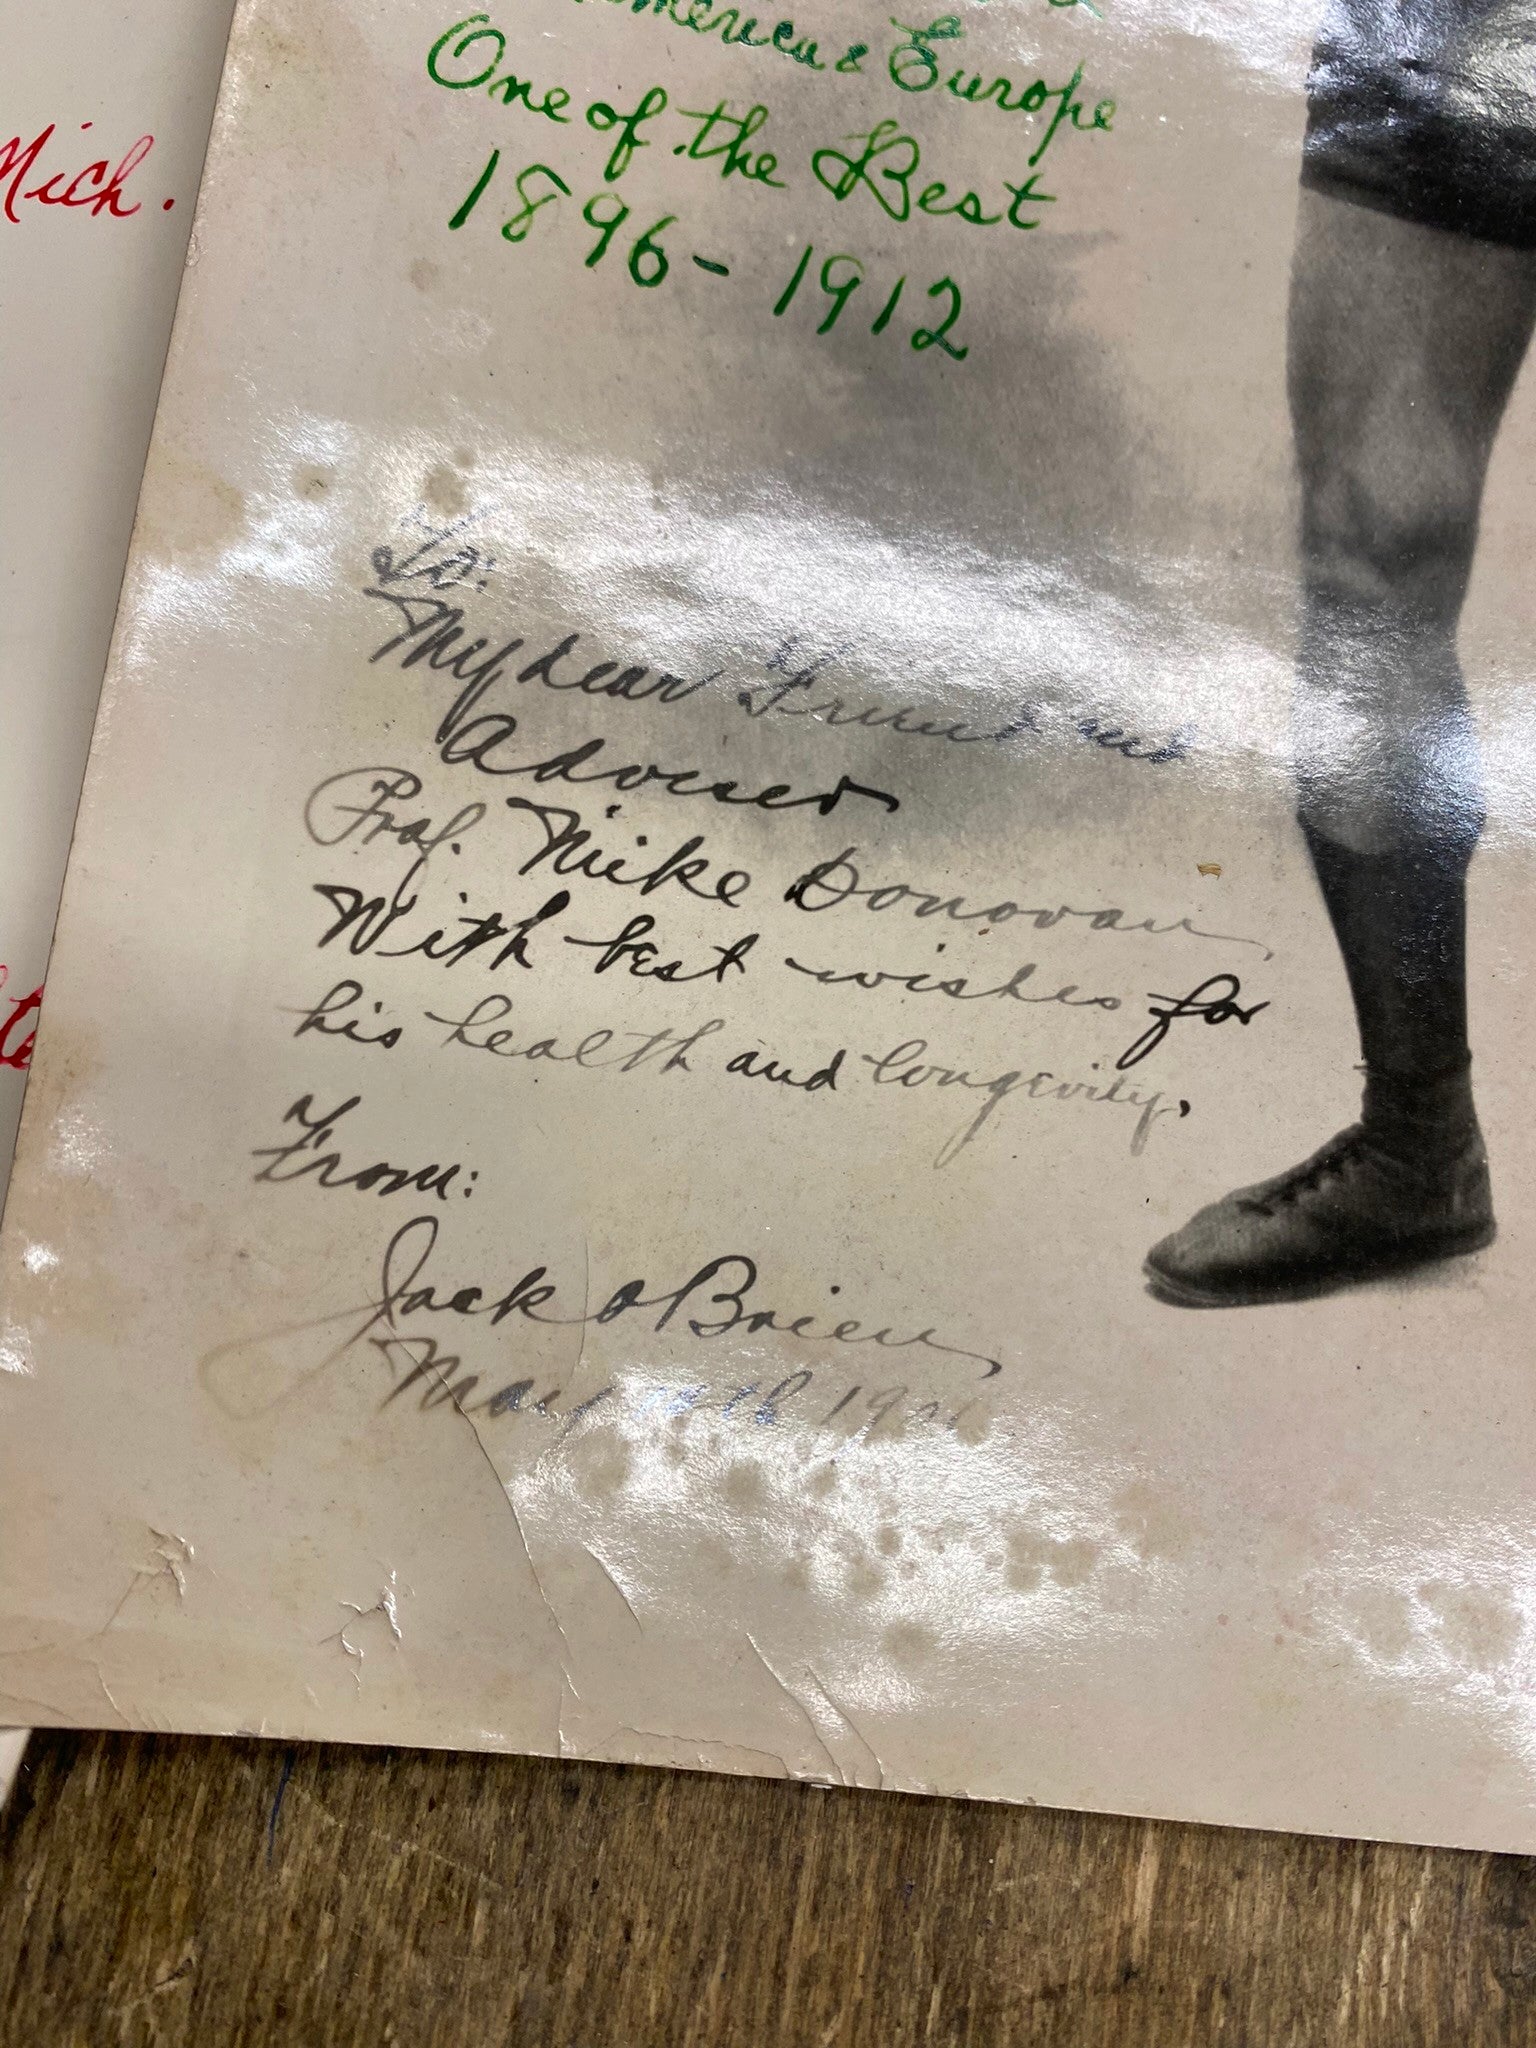 America & Europe
One of the Best
1896-1912
Mich.
To:
My dear Friend and
Adviser
Prof. Mike Donovan
With best wishes for
his health and longevity.
From:
Jack O Brien
May